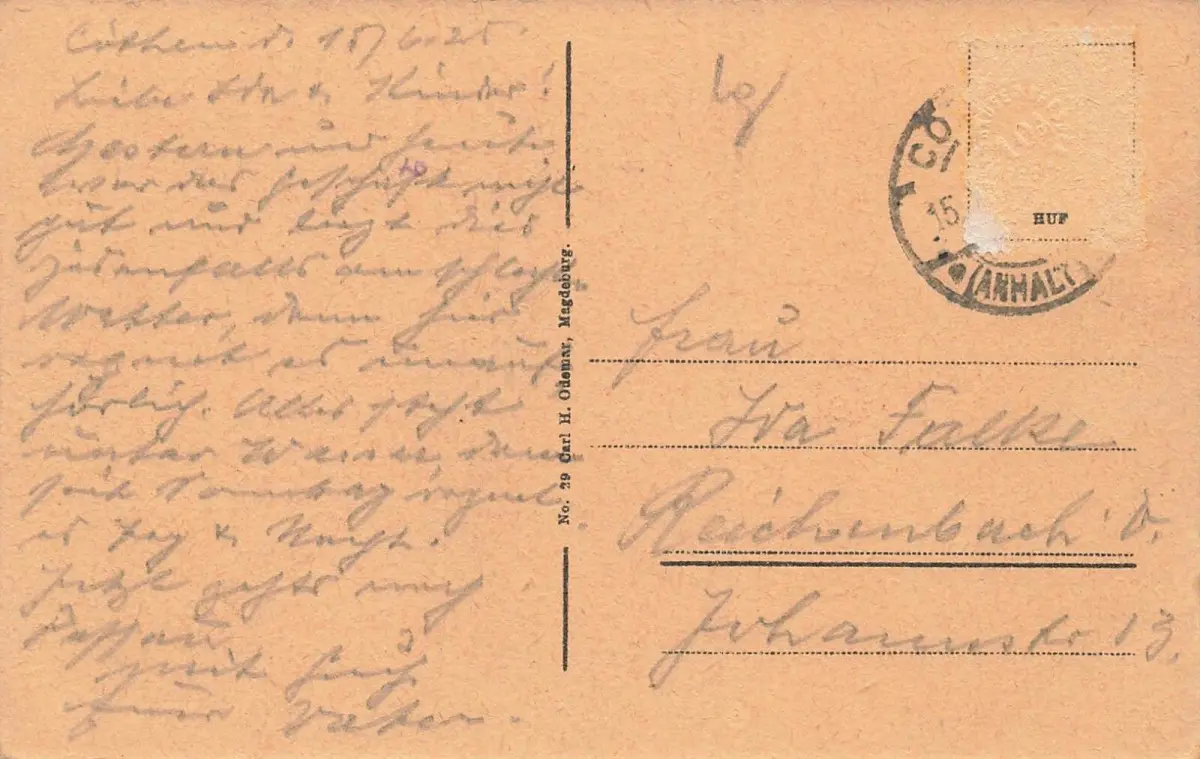 Cöthen d. 15/6.25.
Liebe Ida & Kinder!
Gestern und heute
war das Geschäft nicht
gut und liegt dies
jedenfalls am schlecht.
Wetter, denn hier
regnet es unauf
hörlich. Alles steht
unter Wasser, denn
seit Sonntag regnet
es Tag & Nacht.
Jetzt gehts nach
Dessau
Euer Vater.
No. 29 Carl H. Odemar, Magdeburg.
CÖ
15.
(ANHALT)
HUF
Frau
Ida Falke
Reichenbach i. V.
Johannstr 13.